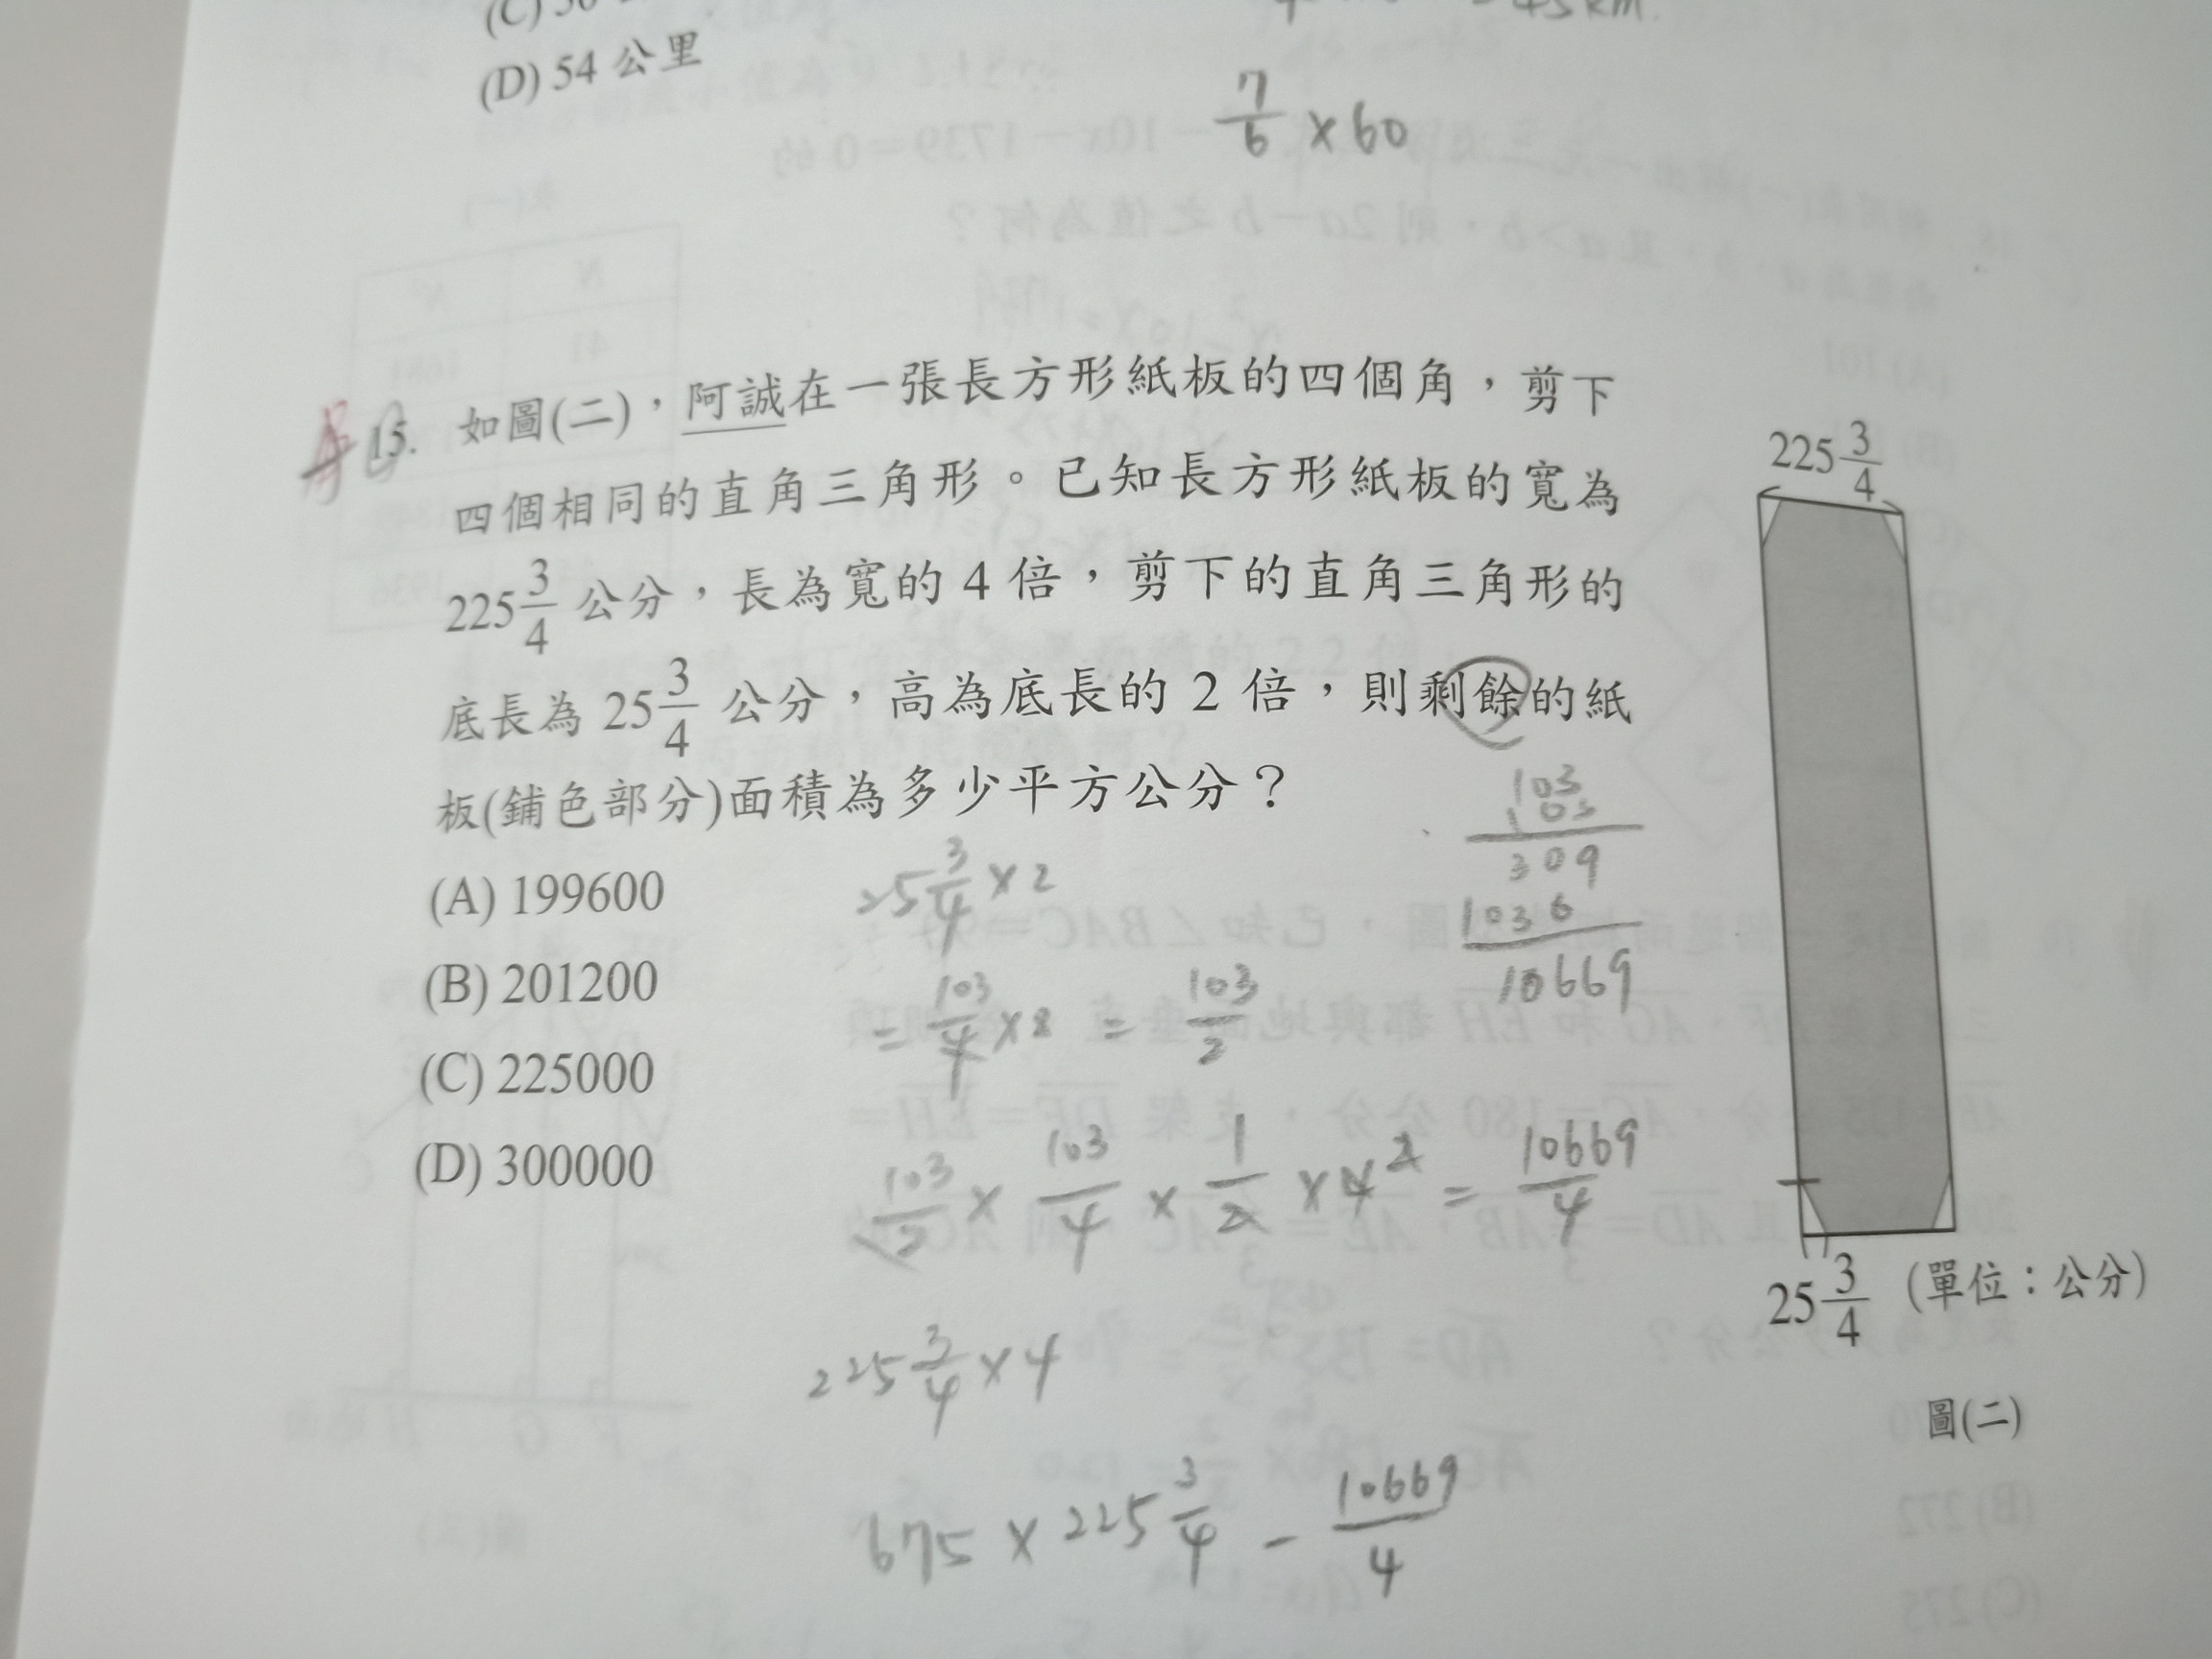 (D) 54 公里
7/6 × 60
15. 如圖(二)，阿誠在一張長方形紙板的四個角，剪下
四個相同的直角三角形。已知長方形紙板的寬為
225 3/4 公分，長為寬的 4 倍，剪下的直角三角形的
底長為 25 3/4 公分，高為底長的 2 倍，則剩餘的紙
板(鋪色部分)面積為多少平方公分？
(A) 199600
(B) 201200
(C) 225000
(D) 300000
25 3/4 × 2
= 103/4 × 2 = 103/2
103/2 × 103/4 × 1/2 × 4 2 = 10669/4
225 3/4 × 4
675 × 225 3/4 - 10669/4
103
103
309
1030
10669
225 3/4
25 3/4 (單位：公分)
圖(二)